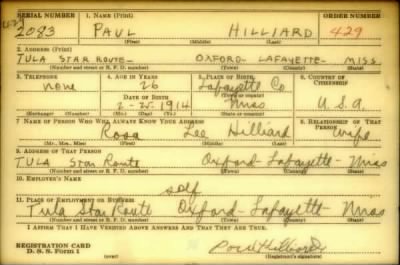 SERIAL NUMBER 1. NAME (Print) ORDER NUMBER
2083 PAUL HILLIARD 429
(First) (Middle) (Last)
2. ADDRESS (Print)
TULA STAR ROUTE— OXFORD— LAFAYETTE— MISS.
(Number and street or R. F. D. number) (Town) (County) (State)
3. TELEPHONE 4. AGE IN YEARS 5. PLACE OF BIRTH 6. COUNTRY OF CITIZENSHIP
none 26 Lafayette Co
DATE OF BIRTH
2-25-1914 Miss U.S.A.
(Exchange) (Number) (Mo.) (Day) (Yr.) (State or country)
7. NAME OF PERSON WHO WILL ALWAYS KNOW YOUR ADDRESS 8. RELATIONSHIP OF THAT PERSON
Rosa Lee Hilliard wife
(Mr., Mrs., Miss) (First) (Middle) (Last)
9. ADDRESS OF THAT PERSON
TULA Star Route Oxford-Lafayette- Miss
(Number and street or R. F. D. number) (Town) (County) (State)
10. EMPLOYER'S NAME
self
11. PLACE OF EMPLOYMENT OR BUSINESS
Tula Star Route Oxford-Lafayette- Miss
(Number and street or R. F. D. number) (Town) (County) (State)
I AFFIRM THAT I HAVE VERIFIED ABOVE ANSWERS AND THAT THEY ARE TRUE.
REGISTRATION CARD
D. S. S. Form 1 Paul Hilliard
(over) (Registrant's signature)